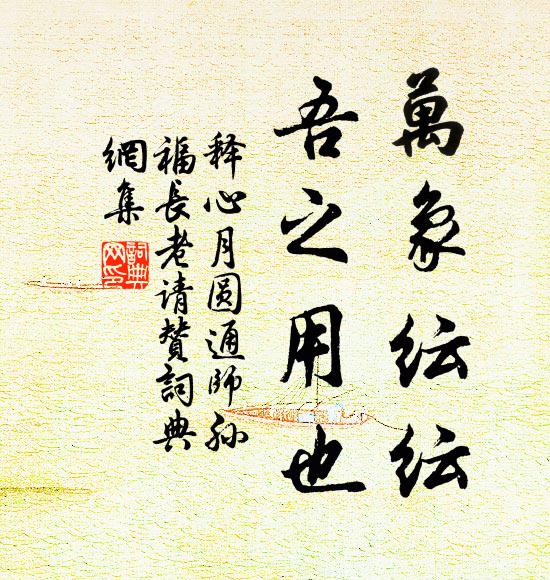 萬象紜紜
吾之用也
释心月圆通師孙
福長老请賛詞典
網集
詞典
网印